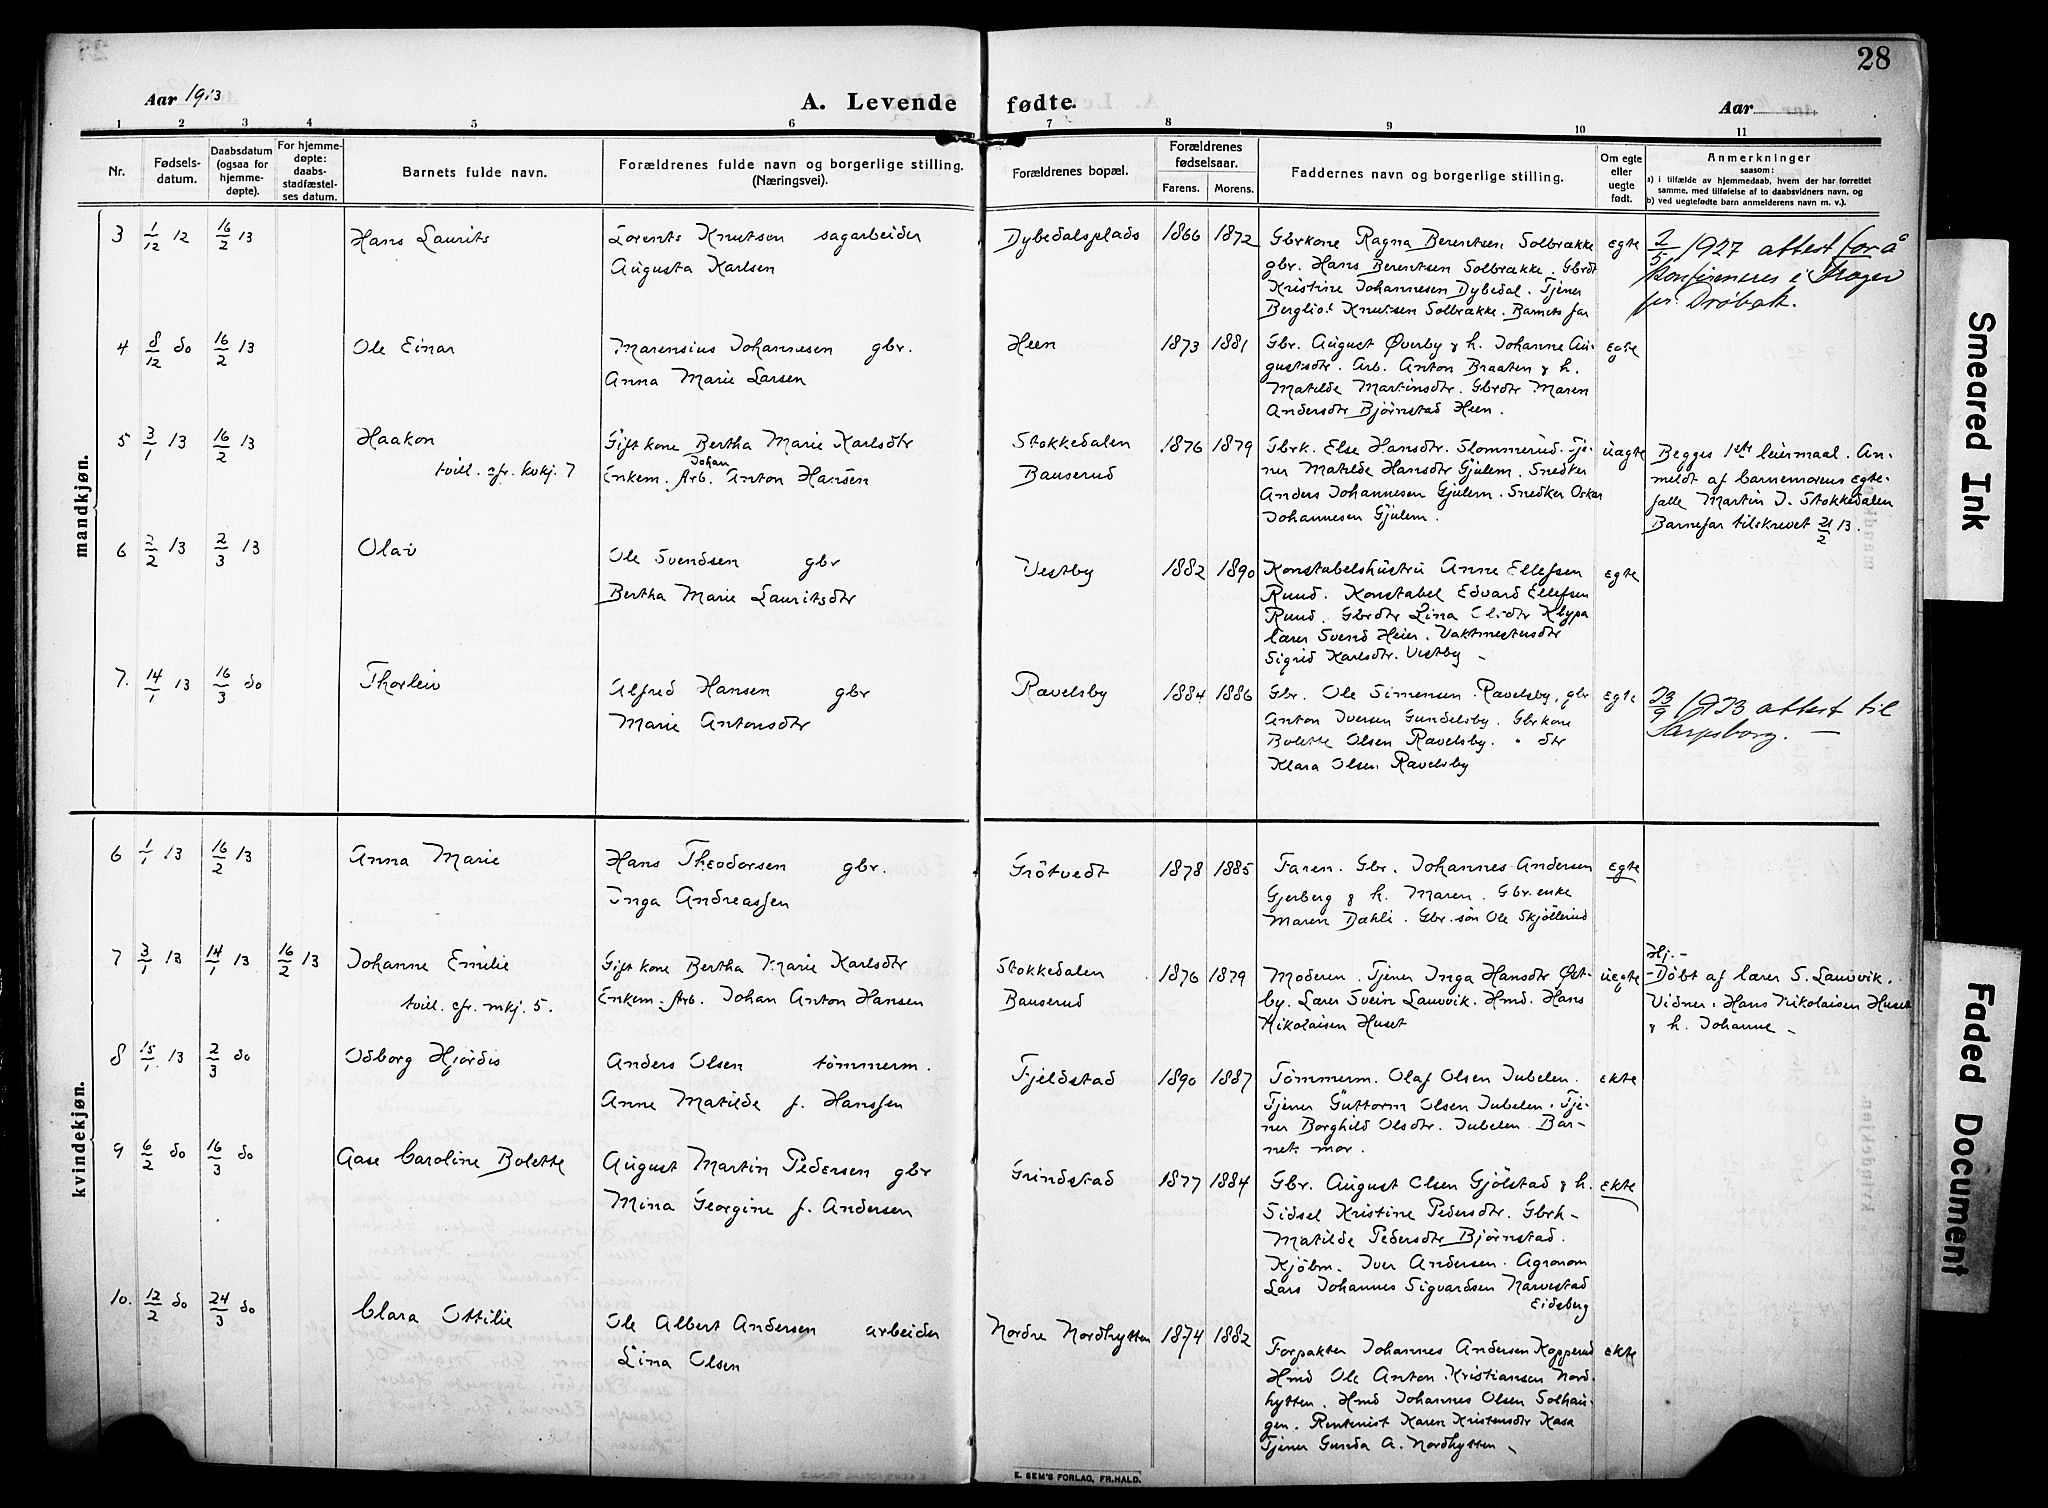 28
Aar 1913
A. Levende fødte.
Aar
1 2 3 4 5 6 7 8 9 10 11
Nr.
Fødsels-
datum.
Daabsdatum
(ogsaa for
hjemme-
døpte).
For hjemme-
døpte:
daabs-
stadfæstel-
ses datum.
Barnets fulde navn.
Forældrenes fulde navn og borgerlige stilling.
(Næringsvei).
Forældrenes bopæl.
Forældrenes
fødselsaar.
Farens. Morens.
Faddernes navn og borgerlige stilling.
Om egte
eller
uegte
født.
Anmerkninger
saasom:
a) i tilfælde av hjemmedaab, hvem der har forrettet
samme, med tilføielse af to daabsvidners navn, og
b) ved uegtefødte barn anmelderens navn m. v.).
mandkjøn.
3 1/12 12 16/2 13 Hans Laurits
Lorents Knutsen sagarbeider
Augusta Karlsen
Dybedalsplads 1866 1872
Gbrkone Ragna Berentsen Solbrække
gbr. Hans Berentsen Solbrække. Gbrdt
Kristine Johannesen Dybedal. Tjener
Bergliot Knutsen Solbrække. Barnets far
egte
2/5 1927 attest for å
konfirmeres i
pr. Drøbak.
4 8/12 do 16/2 13 Ole Einar
Marensius Johannesen gbr.
Anna Marie Larsen
Heen 1873 1881
Gbr. August Øverby & h. Johanne Au-
gustsdtr. Arb. Anton Braaten & h.
Matilde Martinsdtr. Gbrdtr Maren
Andersdtr Bjørnstad Heen.
egte
5 3/1 13 16/2 13 Haakon
tvill. cfr. kvkj. 7
Gift kone Bertha Marie Karlsdtr
Johan
Enkem. Arb. Anton Hansen
Stokkedalen
Bauserud
1876 1879
Gbrk. Else Hansdtr. Slommerud. Tje-
ner Matilde Hansdtr Gjulem. Snedker
Anders Johannesen Gjulem. Snedker Oskar
Johannesen Gjulem.
uægte
Begges 1ste leiermaal. An-
meldt af barnemorens egte-
fælle Martin J. Stokkedalen
Barnefar tilskrevet 21/2 13.
6 2/2 13 2/3 13 Olav
Ole Svendsen gbr
Bertha Marie Lauritsdtr
Vestby 1882 1890
Konstabelshustru Anne Ellefsen
Ruud. Konstabel Edvard Ellefsen
Ruud. Gbrdtr Lina Olsdtr Klypa
lærer Svend Heier. Vaktmestersdtr
Sigrid Karlsdtr. Vestby -
egte
7. 14/1 13 16/3 do Thorleiv
Alfred Hansen gbr
Marie Antonsdtr
Ravelsby 1884 1886
Gbr. Ole Simensen. Ravelsby, gbr
Anton Iversen Gundelsby. Gbrkone
Bolette Olsen Ravelsby. " dtr
Klara Olsen Ravelsby
egte
23/9 1923 attest til
Sarpsborg. -
kvindekjøn.
6 1/1 13 16/2 13 Anna Marie
Hans Theodorsen gbr.
Inga Andreassen
Grötvedt 1878 1885
Faren. Gbr. Johannes Andersen
Gjerberg & h. Maren. Gbr. enke
Maren Dæhli. Gbr. søn Ole Skjöllerud
egte
7 3/1 13 14/1 13 16/2 13 Johanne Emilie
tvill. cfr. mkj. 5.
Gift kone Bertha Marie Karlsdtr
Enkem. Arb. Johan Anton Hansen
Stokkedalen
Bauserud
1876 1879
Moderen. Tjener Inga Hansdtr Øst-
by. Lærer Svein Lauvvik. Hmd. Hans
Nikolaisen Huset
uegte
Hj. -
- Døbt af lærer S. Lauvvik.
Vidner. Hans Nikolaisen Huset
& h. Johanne -
8 15/1 13 2/3 do Odborg Hjørdis
Anders Olsen tömmerm.
Anne Matilde f. Hanssen
Fjeldstad 1890 1887
Tömmerm. Olaf Olsen Jubelen.
Tjener Guttorm Olsen Jubelen. Tje-
ner Borghild Olsdtr. Jubelen. Bar-
nets mor.
ekte
9 6/2 do 16/3 do Aase Caroline Bolette
August Martin Pedersen gbr
Mina Georgine f. Andersen
Grindstad 1877 1884
Gbr. August Olsen Gjölstad & h.
Sidsel Kristine Pedersdtr. Gbrk-
Matilde Pedersdtr Bjørnstad.
Kjöbm. Iver Andersen. Agronom
Lars Johannes Sigvardsen Narvestad
Eidsberg
ekte
10. 12/2 do 24/3 do Clara Ottilie
Ole Albert Andersen arbeider
Lina Olsen
Nordre Nordhytten 1874 1882
Forpakter Johannes Andersen Kopperud
Hmd Ole Anton Kristiansen Nord-
hytten. Hmd Johannes Olsen Solhau-
gen. Rentenist Karen Kristensdtr Kasa
Tjener Gunda A. Nordhytten -
ekte
E. SEM'S FORLAG, FR.HALD.
Smeared Ink
Faded Document